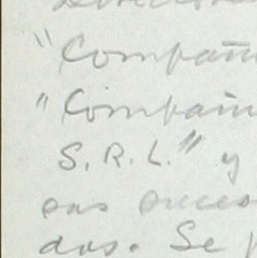 "Compañ
"Compañ
S.R.L." y
sus suces
dos. Se